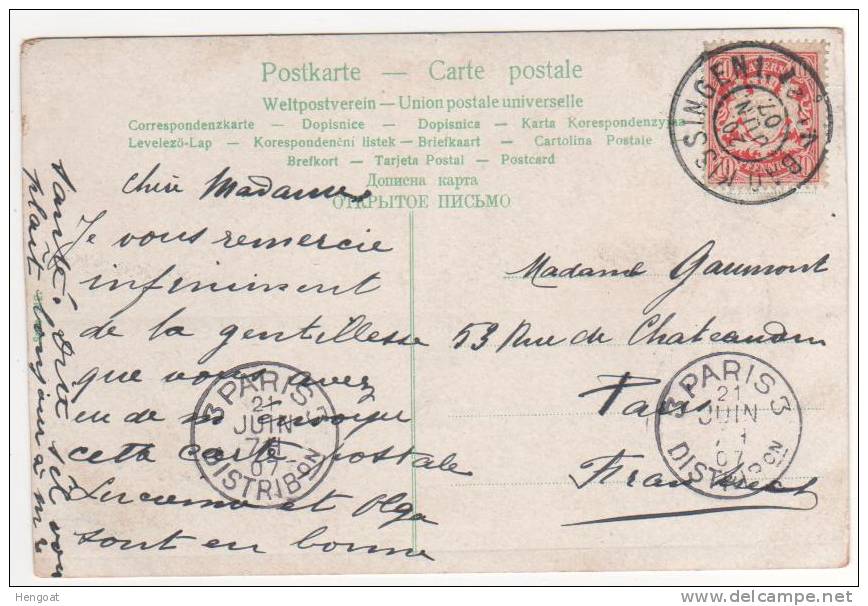 Postkarte — Carte postale
Weltpostverein — Union postale universelle
Correspondenzkarte — Dopisnice — Dopisnica — Karta Korespondenzyjna
Levelező-Lap — Korespondenční listek — Briefkaart — Cartolina Postale
Brefkort — Tarjeta Postal — Postcard
Дописна карта
ОТКРЫТОЕ ПИСЬМО
BAYERN
10 10
PFENNIG
KISSINGEN
20 JUN
07
Chère Madame
Je vous remercie
infiniment
de la gentillesse
que vous avez
eu de m'envoyer
cette carte postale
et Olga
sont en bonne
santé. Dite s'il vou
plait bonjour a m
Madame Gaumont
53 Rue de Chateaudun
Paris
3 PARIS 3
21
JUIN
07
DISTRIBON
3 PARIS 3
21
JUIN
07
DISTRIBON
Hengoat
www.delcampe.net